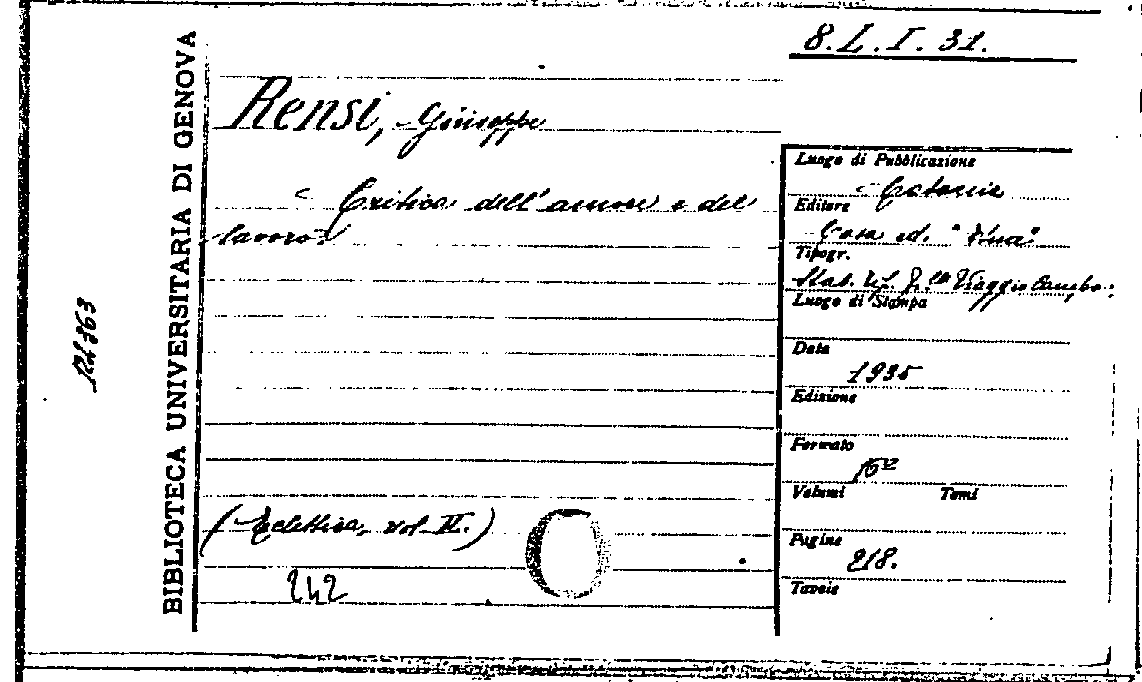 8. L. I. 31.
BIBLIOTECA UNIVERSITARIA DI GENOVA
Rensi, Giuseppe
Critica dell'amore e del
lavoro.
(Eclettica, vol. II.)
242
Luogo di Pubblicazione
Catania
Editore
Casa ed. "Etna"
Tipogr.
Stab. Viaggio Campo
Luogo di Stampa
Data
1935
Edizione
Formato
16º
Volumi Tomi
Pagine
218.
Tavole